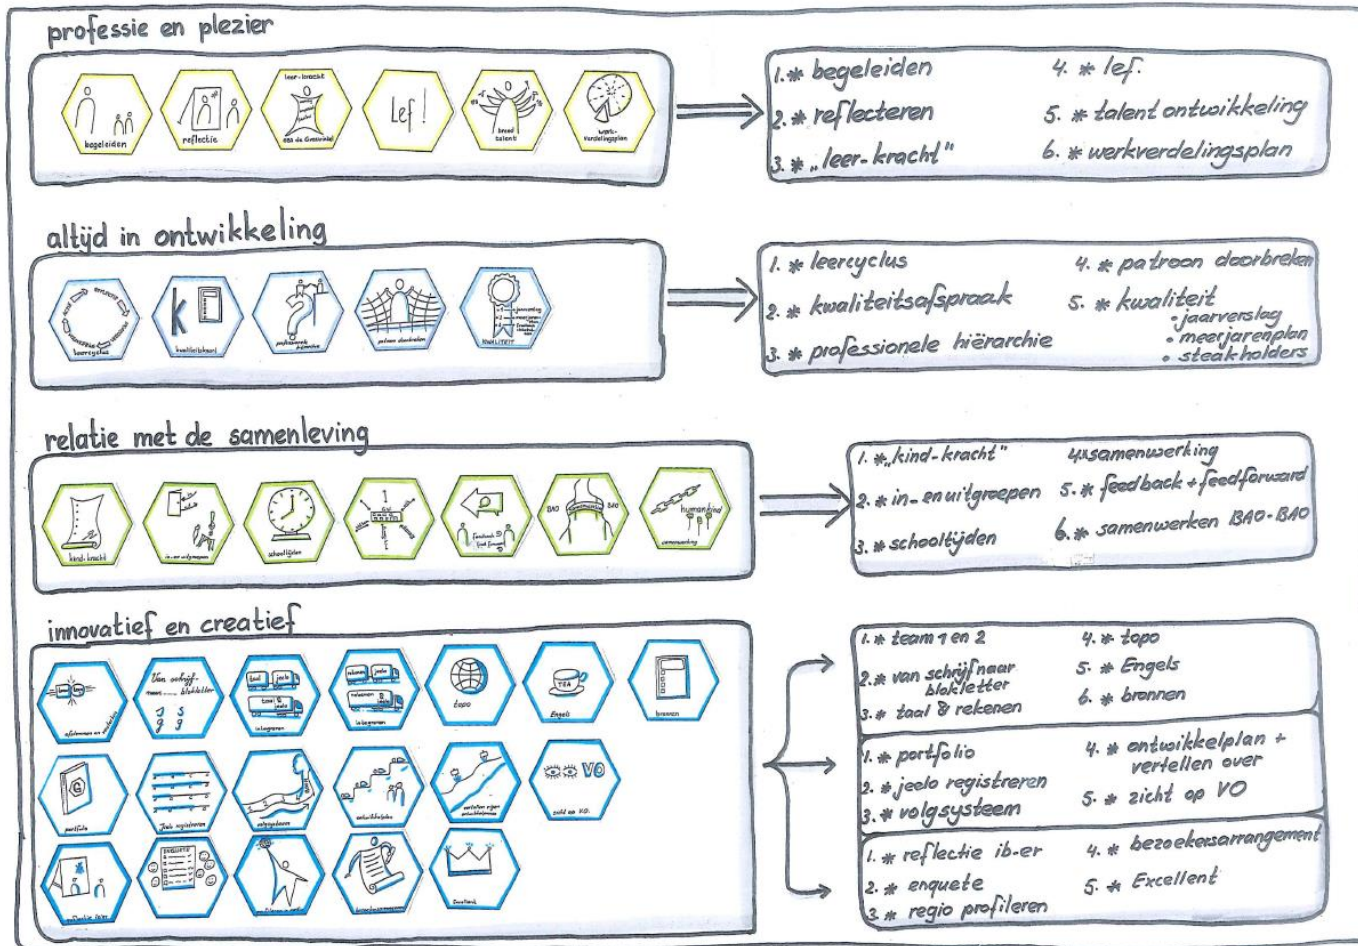 professie en plezier
begeleiden
reflectie
leer-kracht
obs de Graswinkel
Lef!
breed
talent
werk-
verdelingsplan
1. * begeleiden
2. * reflecteren
3. * „leer-kracht"
4. * lef.
5. * talent ontwikkeling
6. * werkverdelingsplan
altijd in ontwikkeling
leercyclus
k
kwaliteitskaart
professionele
hiërarchie
patroon doorbreken
KWALITEIT
1. * leercyclus
2. * kwaliteitsafspraak
3. * professionele hiërarchie
4. * patroon doorbreken
5. * kwaliteit
• jaarverslag
• meerjarenplan
• steakholders
relatie met de samenleving
kind-kracht
in- en uitgroepen
schooltijden
Feedback
feed forward
BAO
samenwerking
BAO
humankind
samenwerking
1. * „kind-kracht"
2. * in- en uitgroepen
3. * schooltijden
4. * samenwerking
5. * feedback + feedforward
6. * samenwerken BAO-BAO
innovatief en creatief
Van schrijf-
naar blokletter
taal
jeelo
taal &
jeelo
integreren
rekenen
jeelo
rekenen
jeelo
integreren
topo
TEA
Engels
bronnen
G
portfolio
Jeelo registreren
volgsysteem
ontwikkelplan
vertellen eigen
VO
zicht op V.O.
ENQUETE
Excellent
1. * team 1 en 2
2. * van schrijf naar
blokletter
3. * taal & rekenen
4. * topo
5. * Engels
6. * bronnen
1. * portfolio
2. * jeelo registreren
3. * volgsysteem
4. * ontwikkelplan +
vertellen over
5. * zicht op VO
1. * reflectie ib-er
2. * enquete
3. * regio profileren
4. * bezoekersarrangement
5. * Excellent